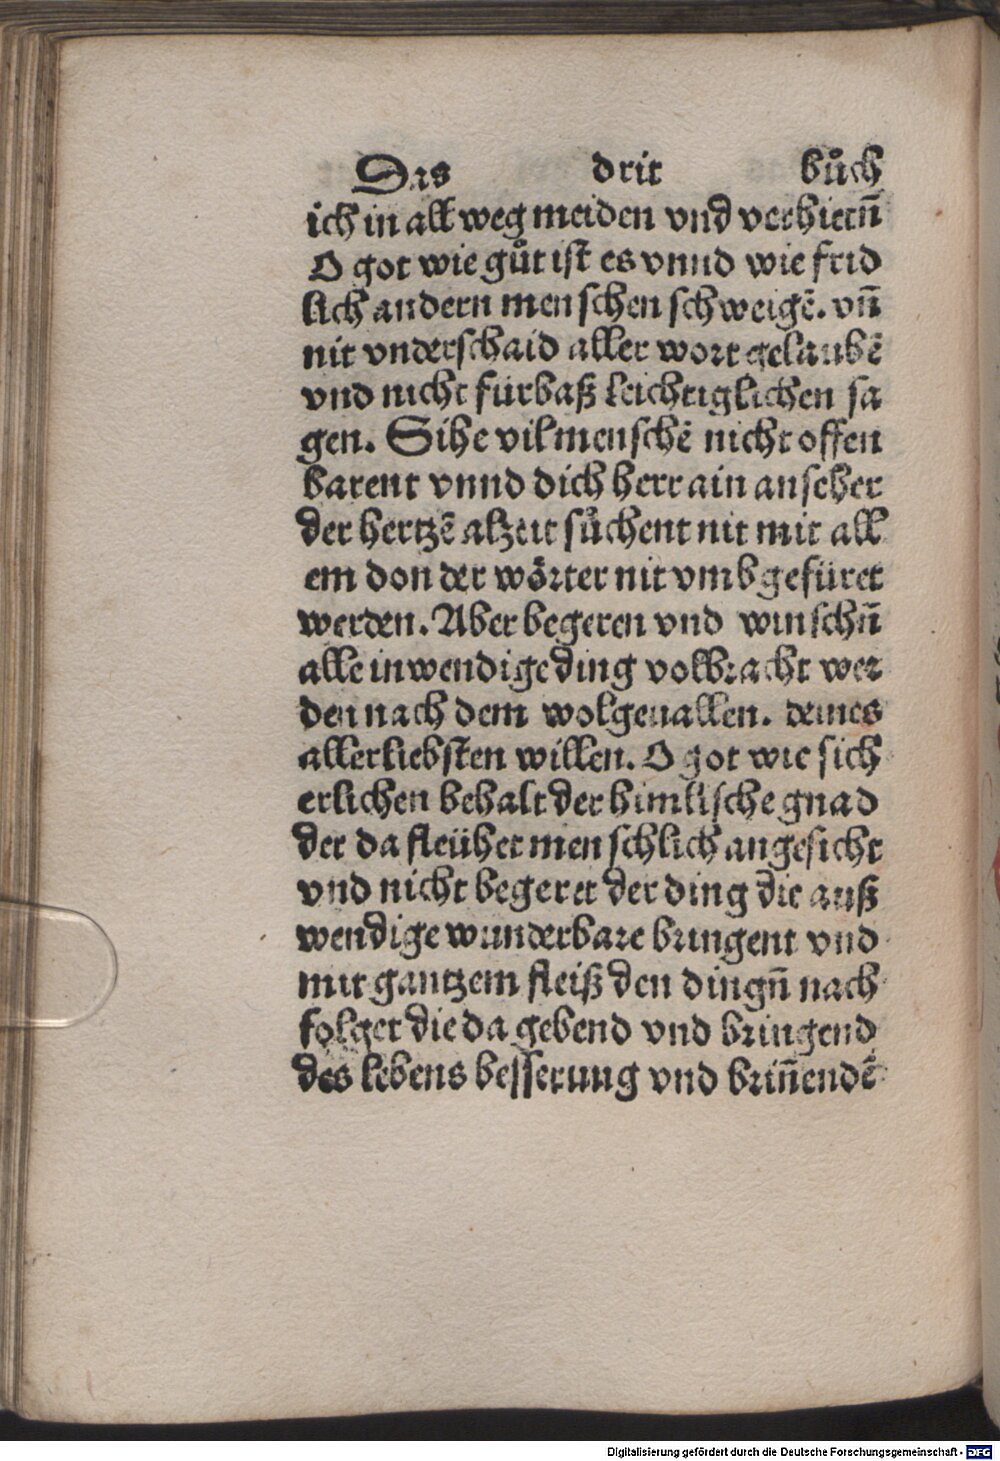 Das drit bůch
ich in all weg meiden vnd verhietn̄
O got wie gůt ist es vnnd wie frid
lich andern menschen schweigē. vn̄
nit vnderschaid aller wort gelaubē
vnd nicht fürbaß leichtiglichen sa
gen. Sihe vil menschē nicht offen
barent vnnd dich herr ain anseher
der hertzē alzeit sůchent nit mit all
em don der wörter nit vmbgefüret
werden. Aber begeren vnd winschn̄
alle inwendige ding volbracht wer
den nach dem wolgeuallen. deines
allerliebsten willen. O got wie sich
erlichen behalt der himlische gnad
der da fleühet menschlich angesicht
vnd nicht begeret der ding die auß
wendige wunderbare bringent vnd
mit gantzem fleiß den dingn̄ nach
folget die da gebend vnd bringend
des lebens besserung vnd brin̄endē
Digitalisierung gefördert durch die Deutsche Forschungsgemeinschaft - DFG